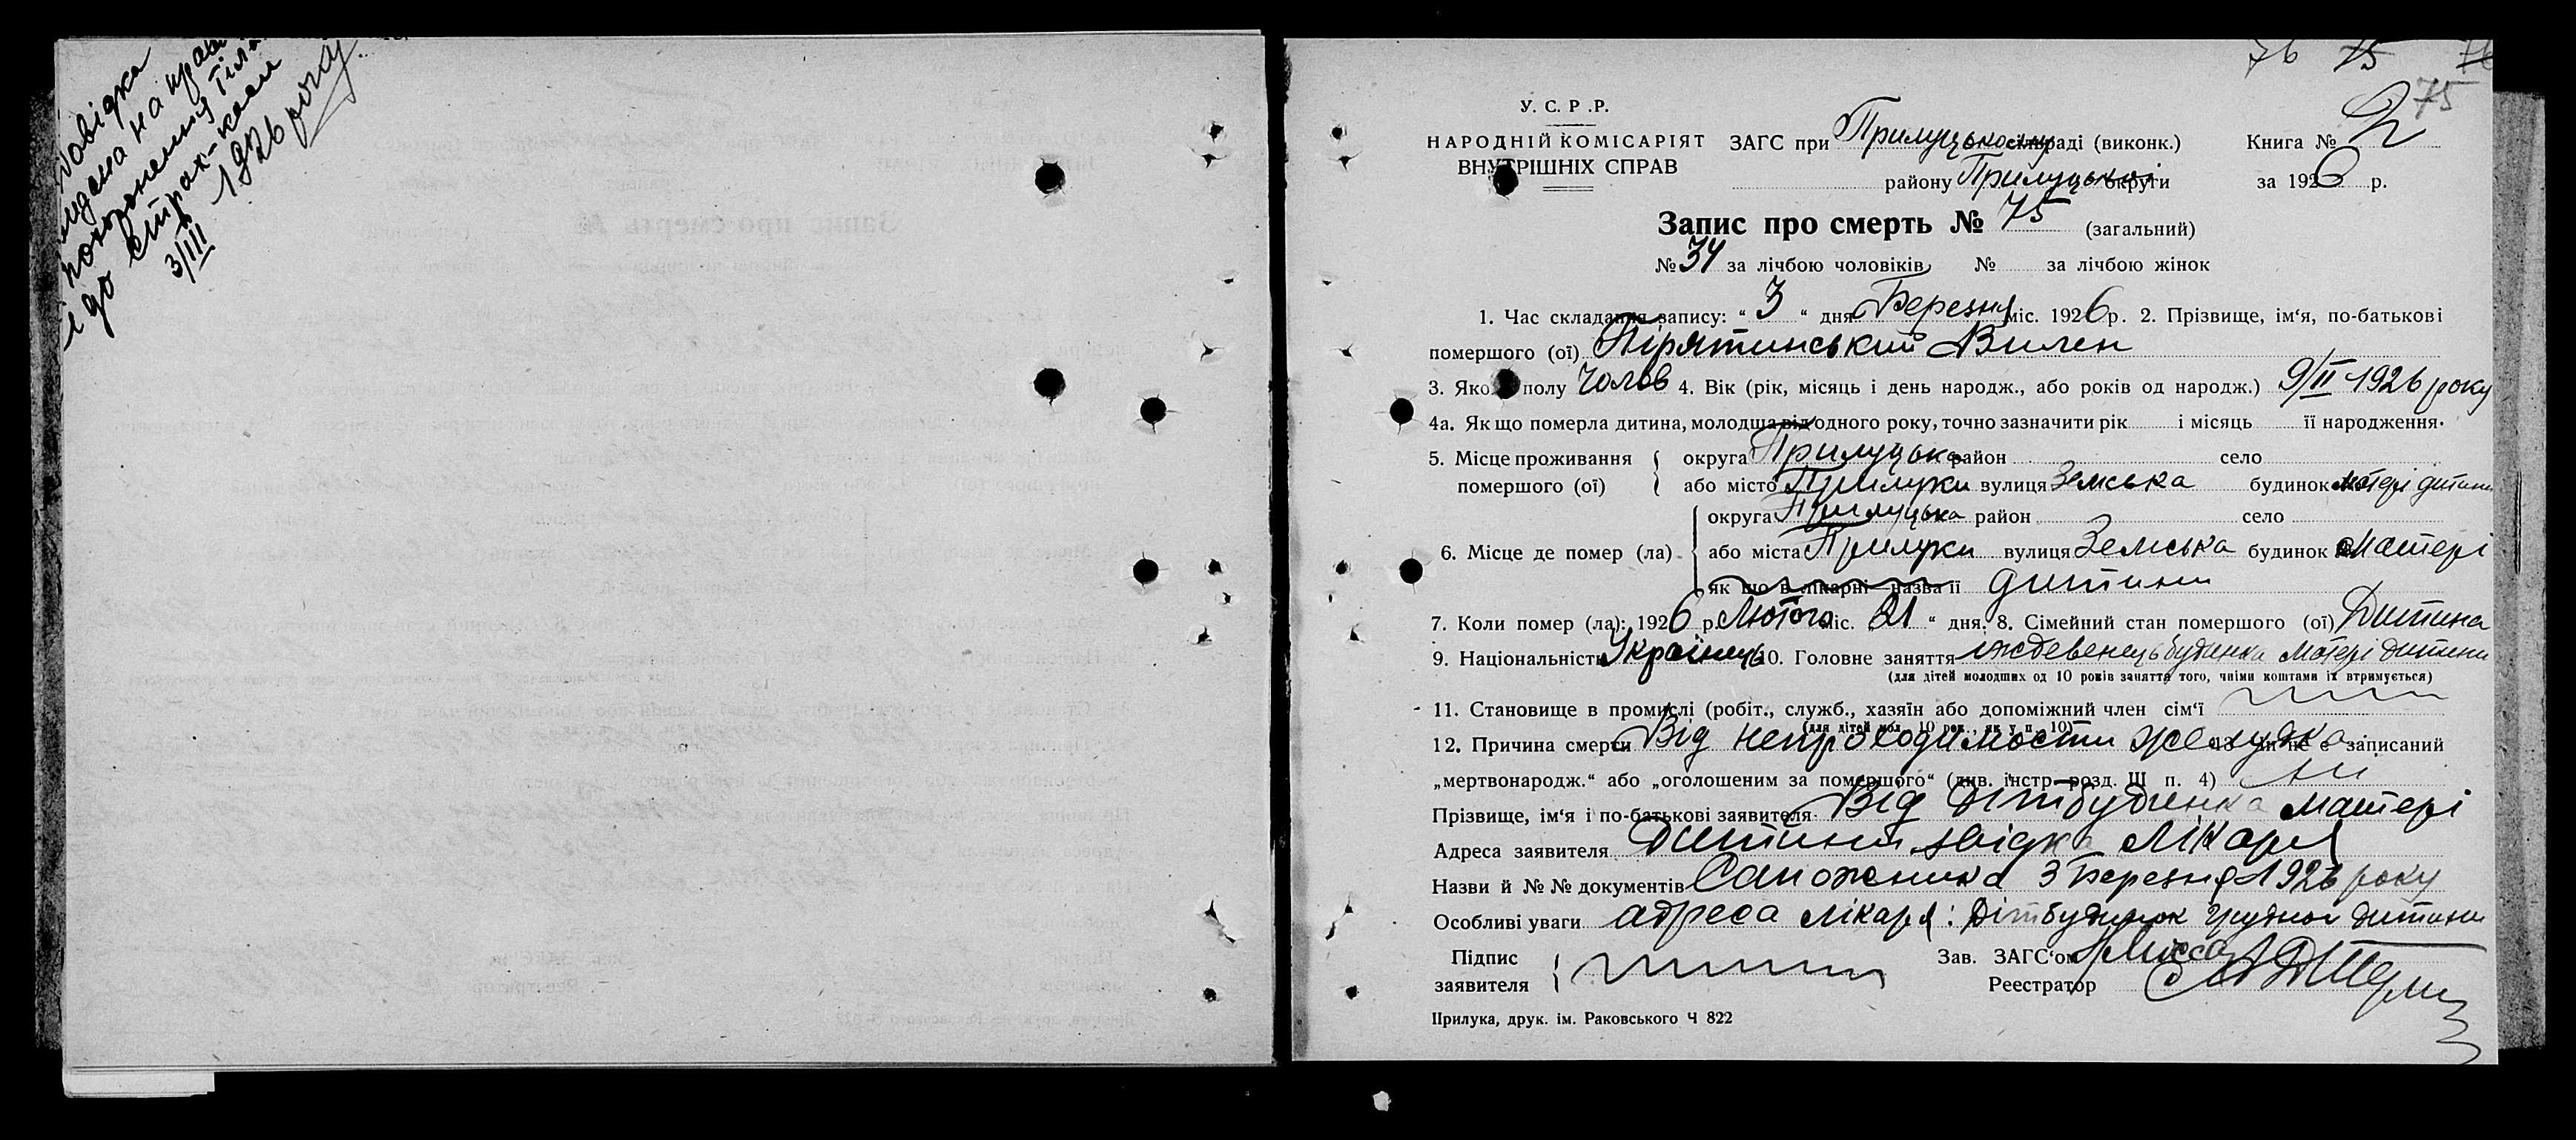 довідка
видана на право
похоронення тіла
і до страх-каси
3/III 1926 року
76 75 76
75
У. С. Р. Р.
НАРОДНІЙ КОМІСАРІЯТ
ВНУТРІШНІХ СПРАВ
ЗАГС при Прилуцькому сільраді (виконк.) Книга № 2
району Прилуцької округи за 1926 р.
Запис про смерть № 75 (загальний)
№ 34 за лічбою чоловіків, № за лічбою жінок
1. Час складання запису: “ 3 “ дня Березня міс. 1926 р. 2. Прізвище, ім‘я, по-батькові
помершого (ої) Пірятинський Вилен
3. Яко полу Чолов 4. Вік (рік, місяць і день народж., або років од народж.) 9/II 1926 року
4а. Як що померла дитина, молодша від одного року, точно зазначити рік і місяць її народження.
5. Місце проживання округа Прилуцька район село
помершого (ої) або місто Прилуки вулиця Земська будинок матері дитини
округа Прилуцька район село
6. Місце де помер (ла) або міста Прилуки вулиця Земська будинок Матері
як що в лікарні назва її дитини
7. Коли помер (ла): 1926 р. Лютого міс. 21 “ дня. 8. Сімейний стан помершого (ої) Дитина
9. Національність Українець 10. Головне заняття іждевенець будинка Матері дитини
(для дітей молодших од 10 років заняття того, чиїми коштами їх втримується)
11. Становище в промислі (робіт., служб., хазяїн або допоміжний член сім‘ї
(для дітей мол. 10 рок., як у п. 10)
12. Причина смерти Від непроходимости желудка 13. Чи не є записаний
„мертвонародж.“ або „оголошеним за помершого“ (див. інстр. розд. Ш п. 4) ні
Прізвище, ім‘я і по-батькові заявителя Від Дітбудинка матері
Адреса заявителя Дитини звідка Лікаря
Назви й №№ документів Сапожника 3 Березня 1926 року
Особливі уваги адреса лікаря: Дітбудинок грудної дитини
Підпис Зав. ЗАГС‘ом
заявителя Реестратор
Прилука, друк. ім. Раковського Ч 822